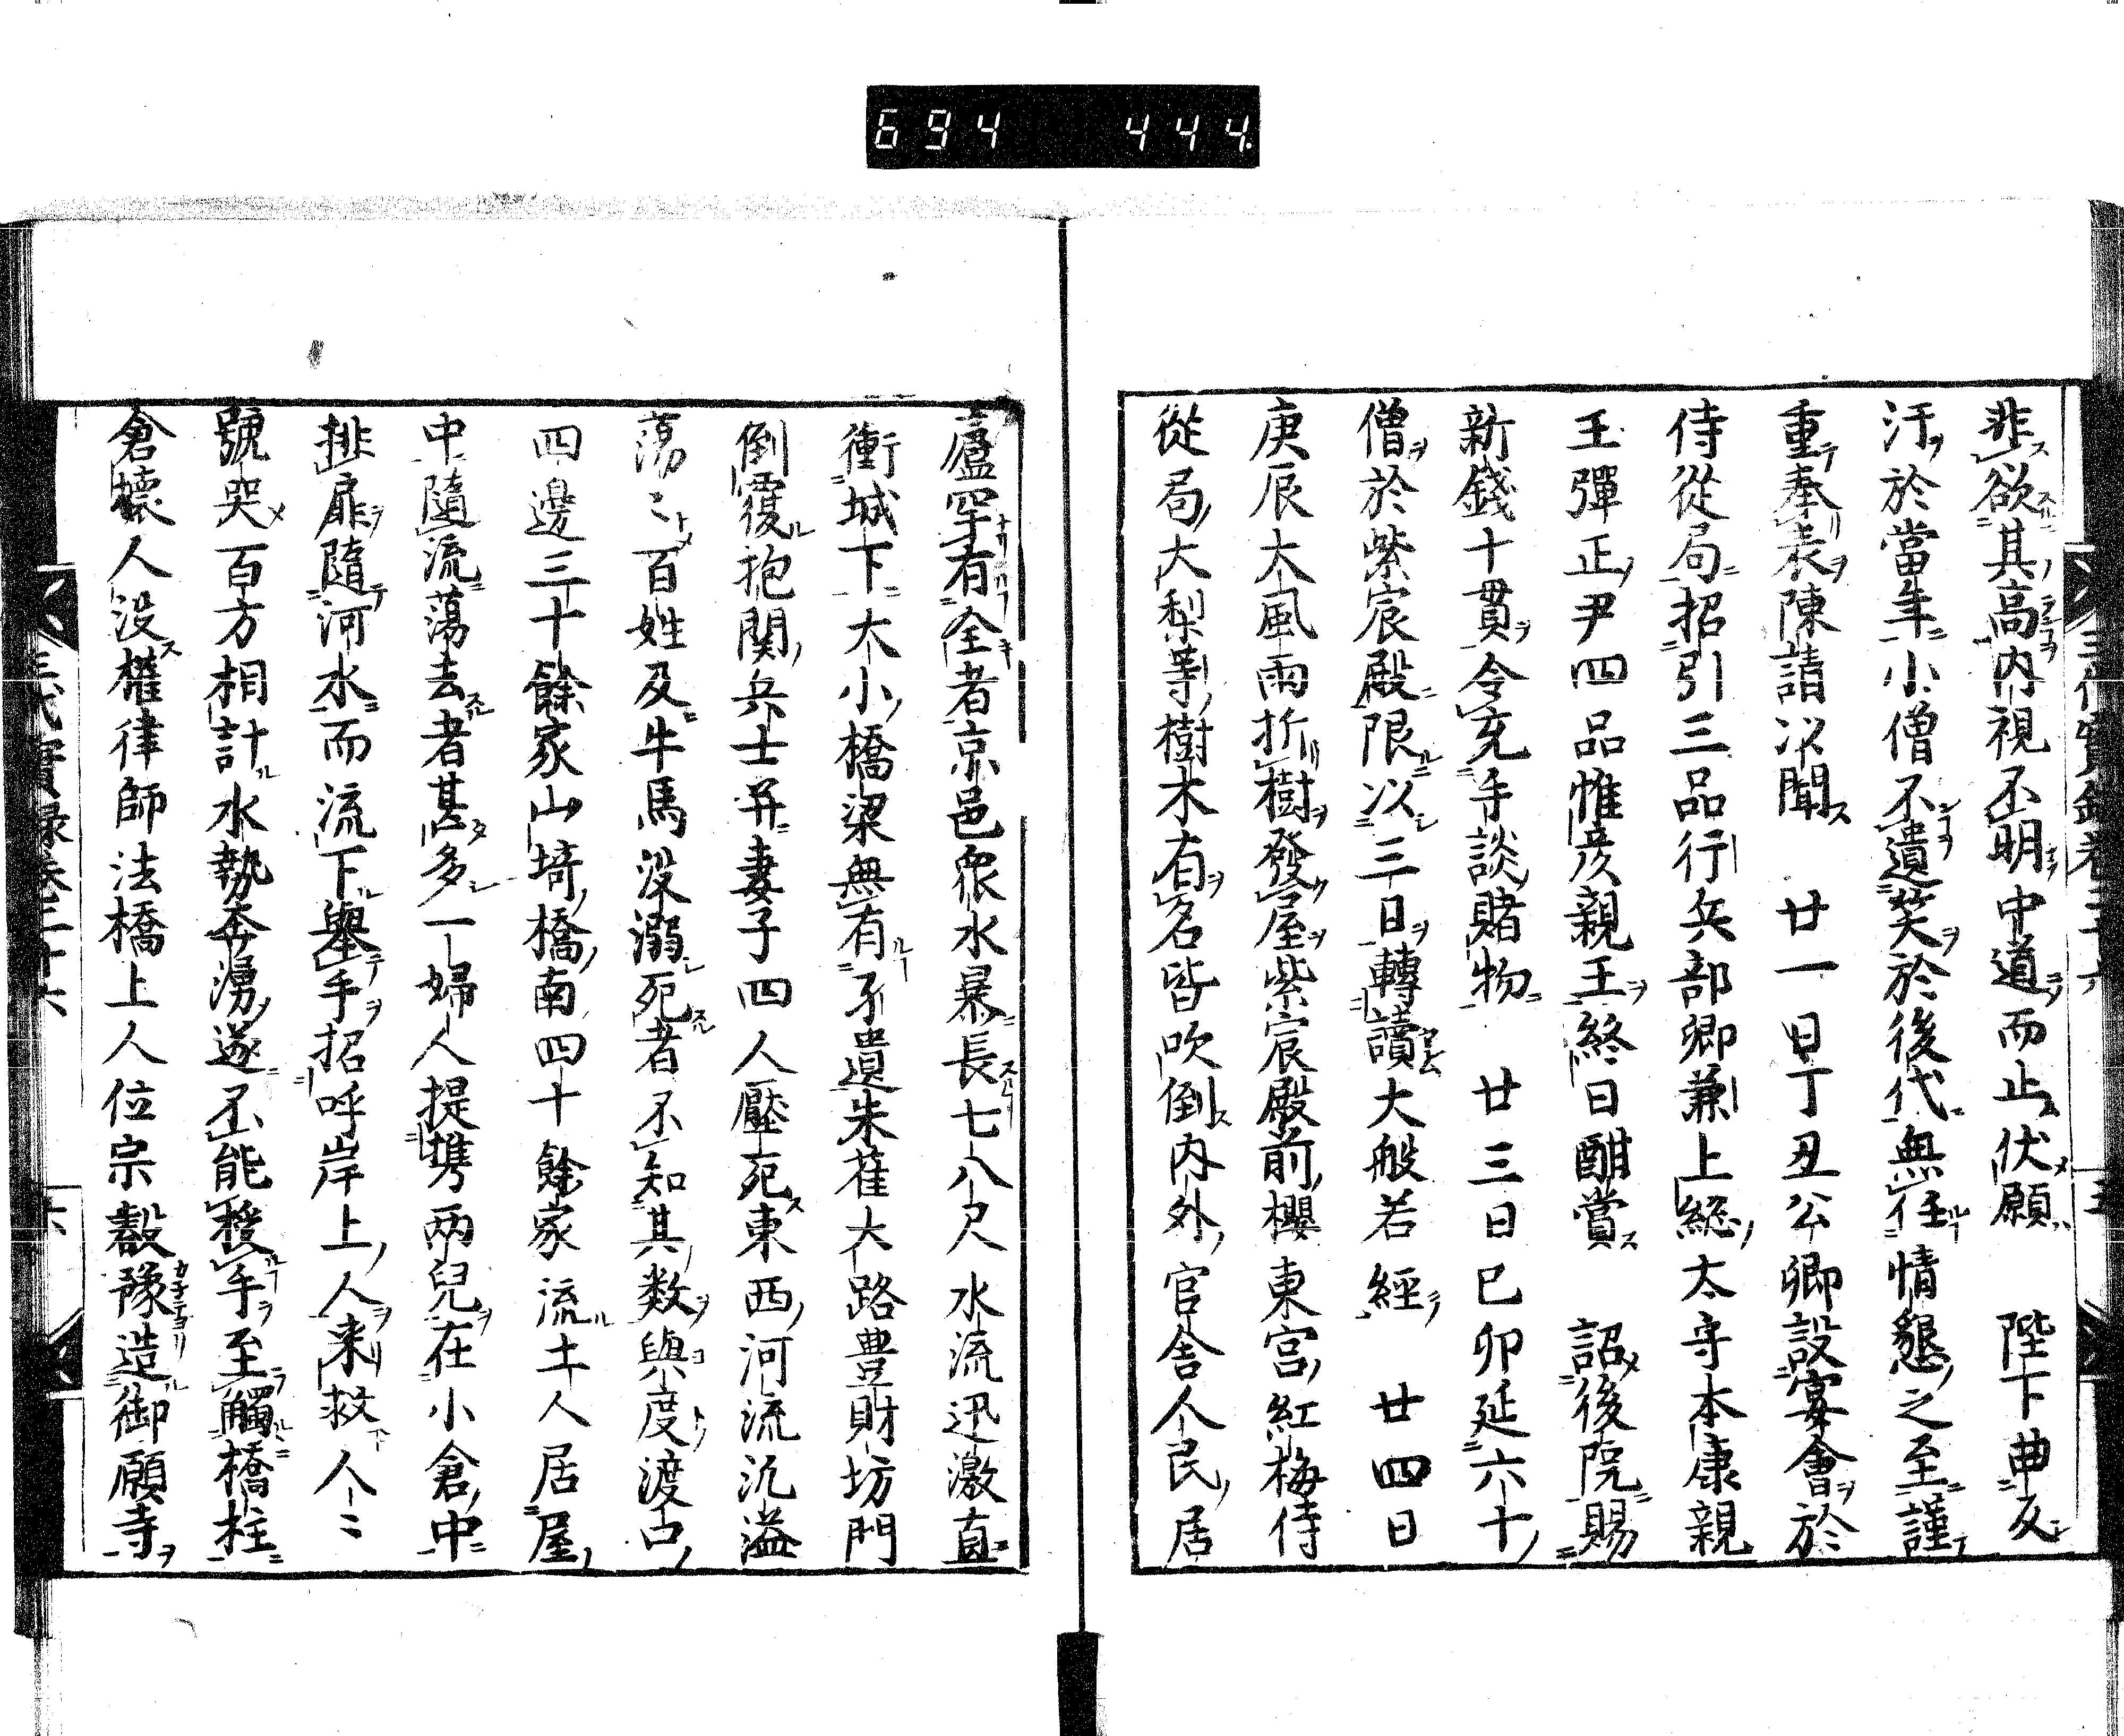 694 444
非欲其高内視丕明中道而止伏願 陛下曲反
汙於當年小僧不遺笑於後代無任情懇之至謹
重奉表陳請以聞 廿一日丁丑公卿設宴會於
侍從局招引三品行兵部卿兼上総太守本康親
王彈正尹四品惟彦親王終日酣賞 詔後院賜
新錢十貫令充手談賭物 廿三日已卯延六十
僧於紫宸殿限以三日轉讀大般若經 廿四日
庚辰大風雨折樹發屋紫宸殿前櫻東宮紅梅侍
從局大梨等樹木有名皆吹倒内外官舍人民居
廬罕有全者京邑衆水暴長七八尺水流迅激直
衝城下大小橋梁無有孑遺朱雀大路豊財坊門
倒覆抱関兵士并妻子四人壓死東西河流汎溢
蕩〻百姓及牛馬没溺死者不知其数與度渡口
四邊三十餘家山埼橋南四十餘家流土人居屋
中隨流蕩去者甚多一婦人提携两兒在小倉中
排扉隨河水而流下舉手招呼岸上人来救人〻
號哭百方相計水勢奔湧遂不能援手至觸橋柱
倉壞人没權律師法橋上人位宗叡豫造御願寺
三代實録卷三十六
六